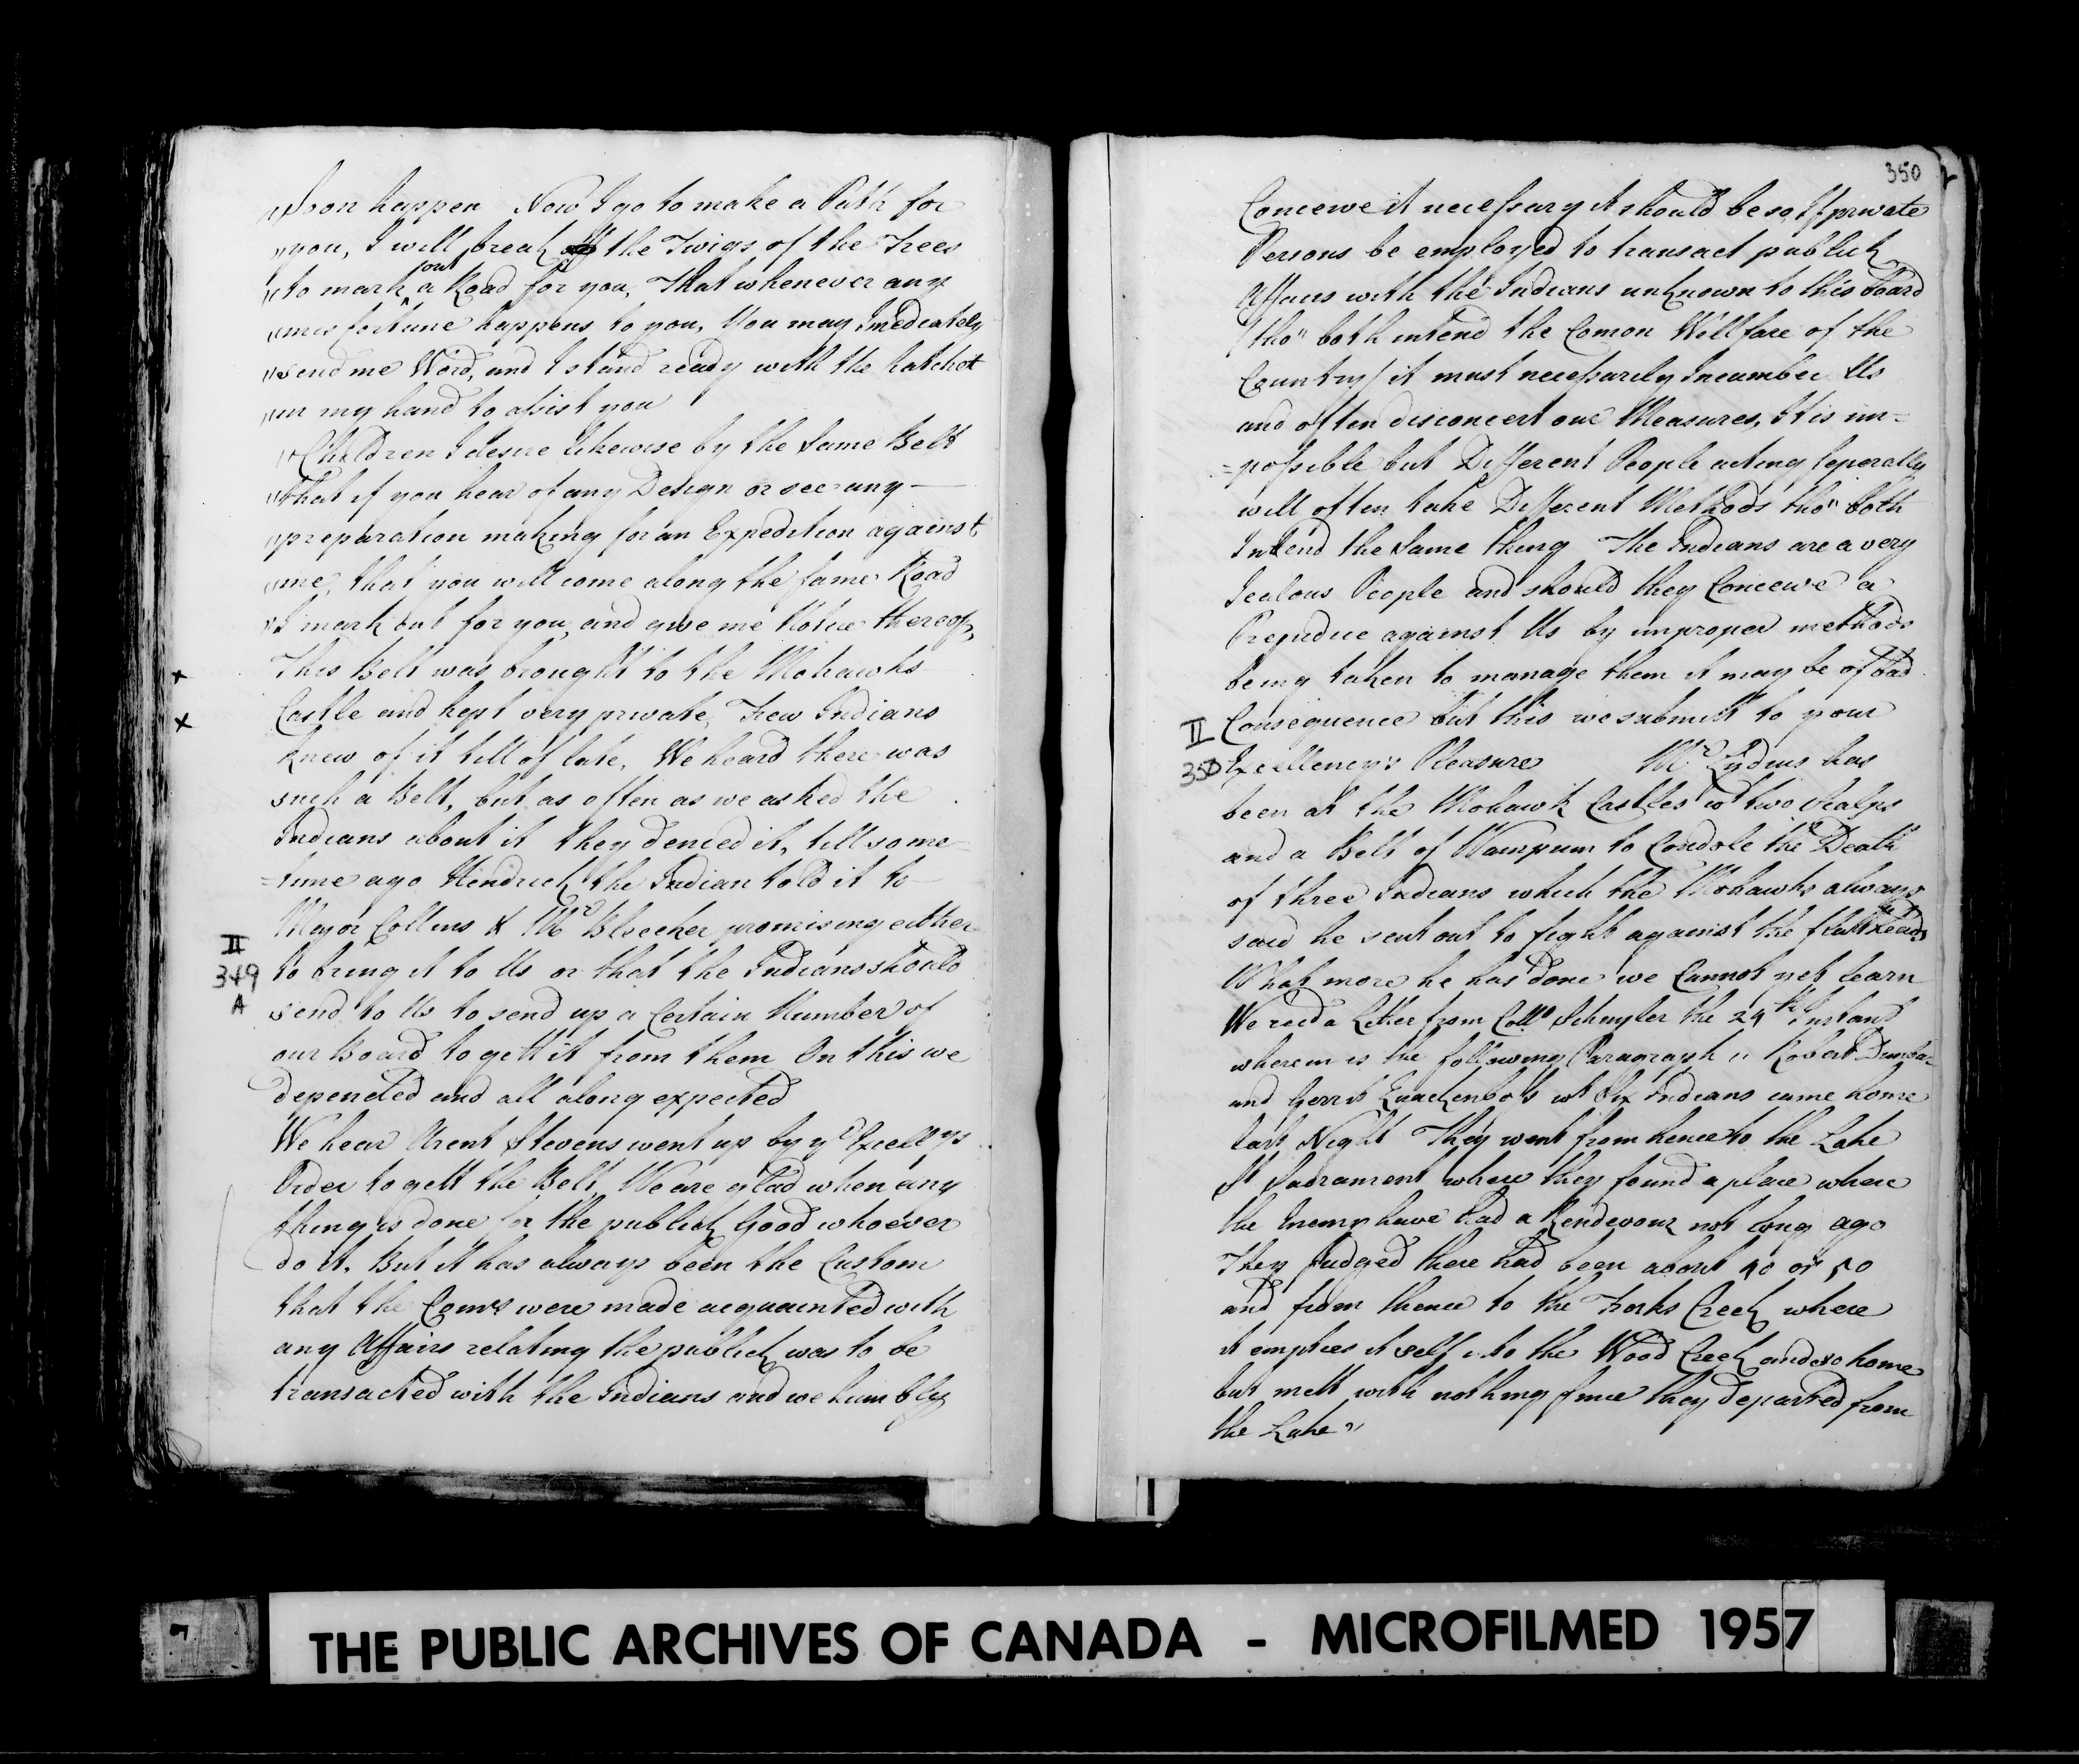 "soon happen Now I go to make a Path for
"you, I will break off the Twigs of the Trees
"to mark out a Road for you, That whenever any
"misfortune happens to you, You may Imediately
"send me Word, and I stand ready with the hatchet
"in my hand to assist you
"Children I desire likewise by the same Belt
"that if you hear of any Design or see any
"preparation making for an Expedition against
"me, that you will come along the same Road
"I mark out for you, and give me Notice thereof,
This Belt was brought to the Mohawks
Castle and kept very private, Few Indians
knew of it till of late, We heard there was
such a Belt, but as often as we asked the
Indians about it they denied it, till some
=time ago Hendrick the Indian told it to
Major Collins & Mr Bleeker promising either
II
349
A
to bring it to Us or that the Indians should
send to Us to send up a Certain Number of
our Board to gett it from them On this we
depended and all along expected
We hear Arent Stevens went up by yr Excellys
Order to gett the Belt, We are glad when any
thing is done for the publick Good whoever
do it, But it has always been the Custom
that the Comrs were made acquainted with
any Affairs relating the publick was to be
transacted with the Indians and we humbly
350
Conceive it necessary it should be so If private
Persons be employed to transact publick
Affairs with the Indians unknown to this Board
(tho" both intend the Comon Wellfare of the
Country) it must necessarily Incumber Us
and often disconcert our Measures, It is im=
=possible but Different People acting seperally
will often take Different Methods tho" both
Intend the same thing The Indians are a very
Jealous People and should they Conceive a
Prejudice against Us by improper methods
being taken to manage them it may be of bad
Consequence but this we submitt to your
II
350
Excellency's Pleasure Mr Lydius has
been at the Mohawk Castles wt two Scalps
and a Belt of Wampum to Condole the Death
of three Indians which the Mohawks always
said he sent out to fight against the flattheads
What more he has done we Cannot yet learn
We recd a Letter from Collo Schuyler the 24th Instant
wherein is the following Paragraph " Robert Dunbar
and Gerrit Quackenboss wt Six Indians came home
last Night They went from hence to the Lake
St Sadrament where they found a place where
the Enemy have had a Rendevouz not long ago
They Judged there had been about 40 or 50
and from thence to the Forks Creek where
it empties it self into the Wood Creek and so home
but mett with nothing since they departed from
the Lake"
THE PUBLIC ARCHIVES OF CANADA - MICROFILMED 1957